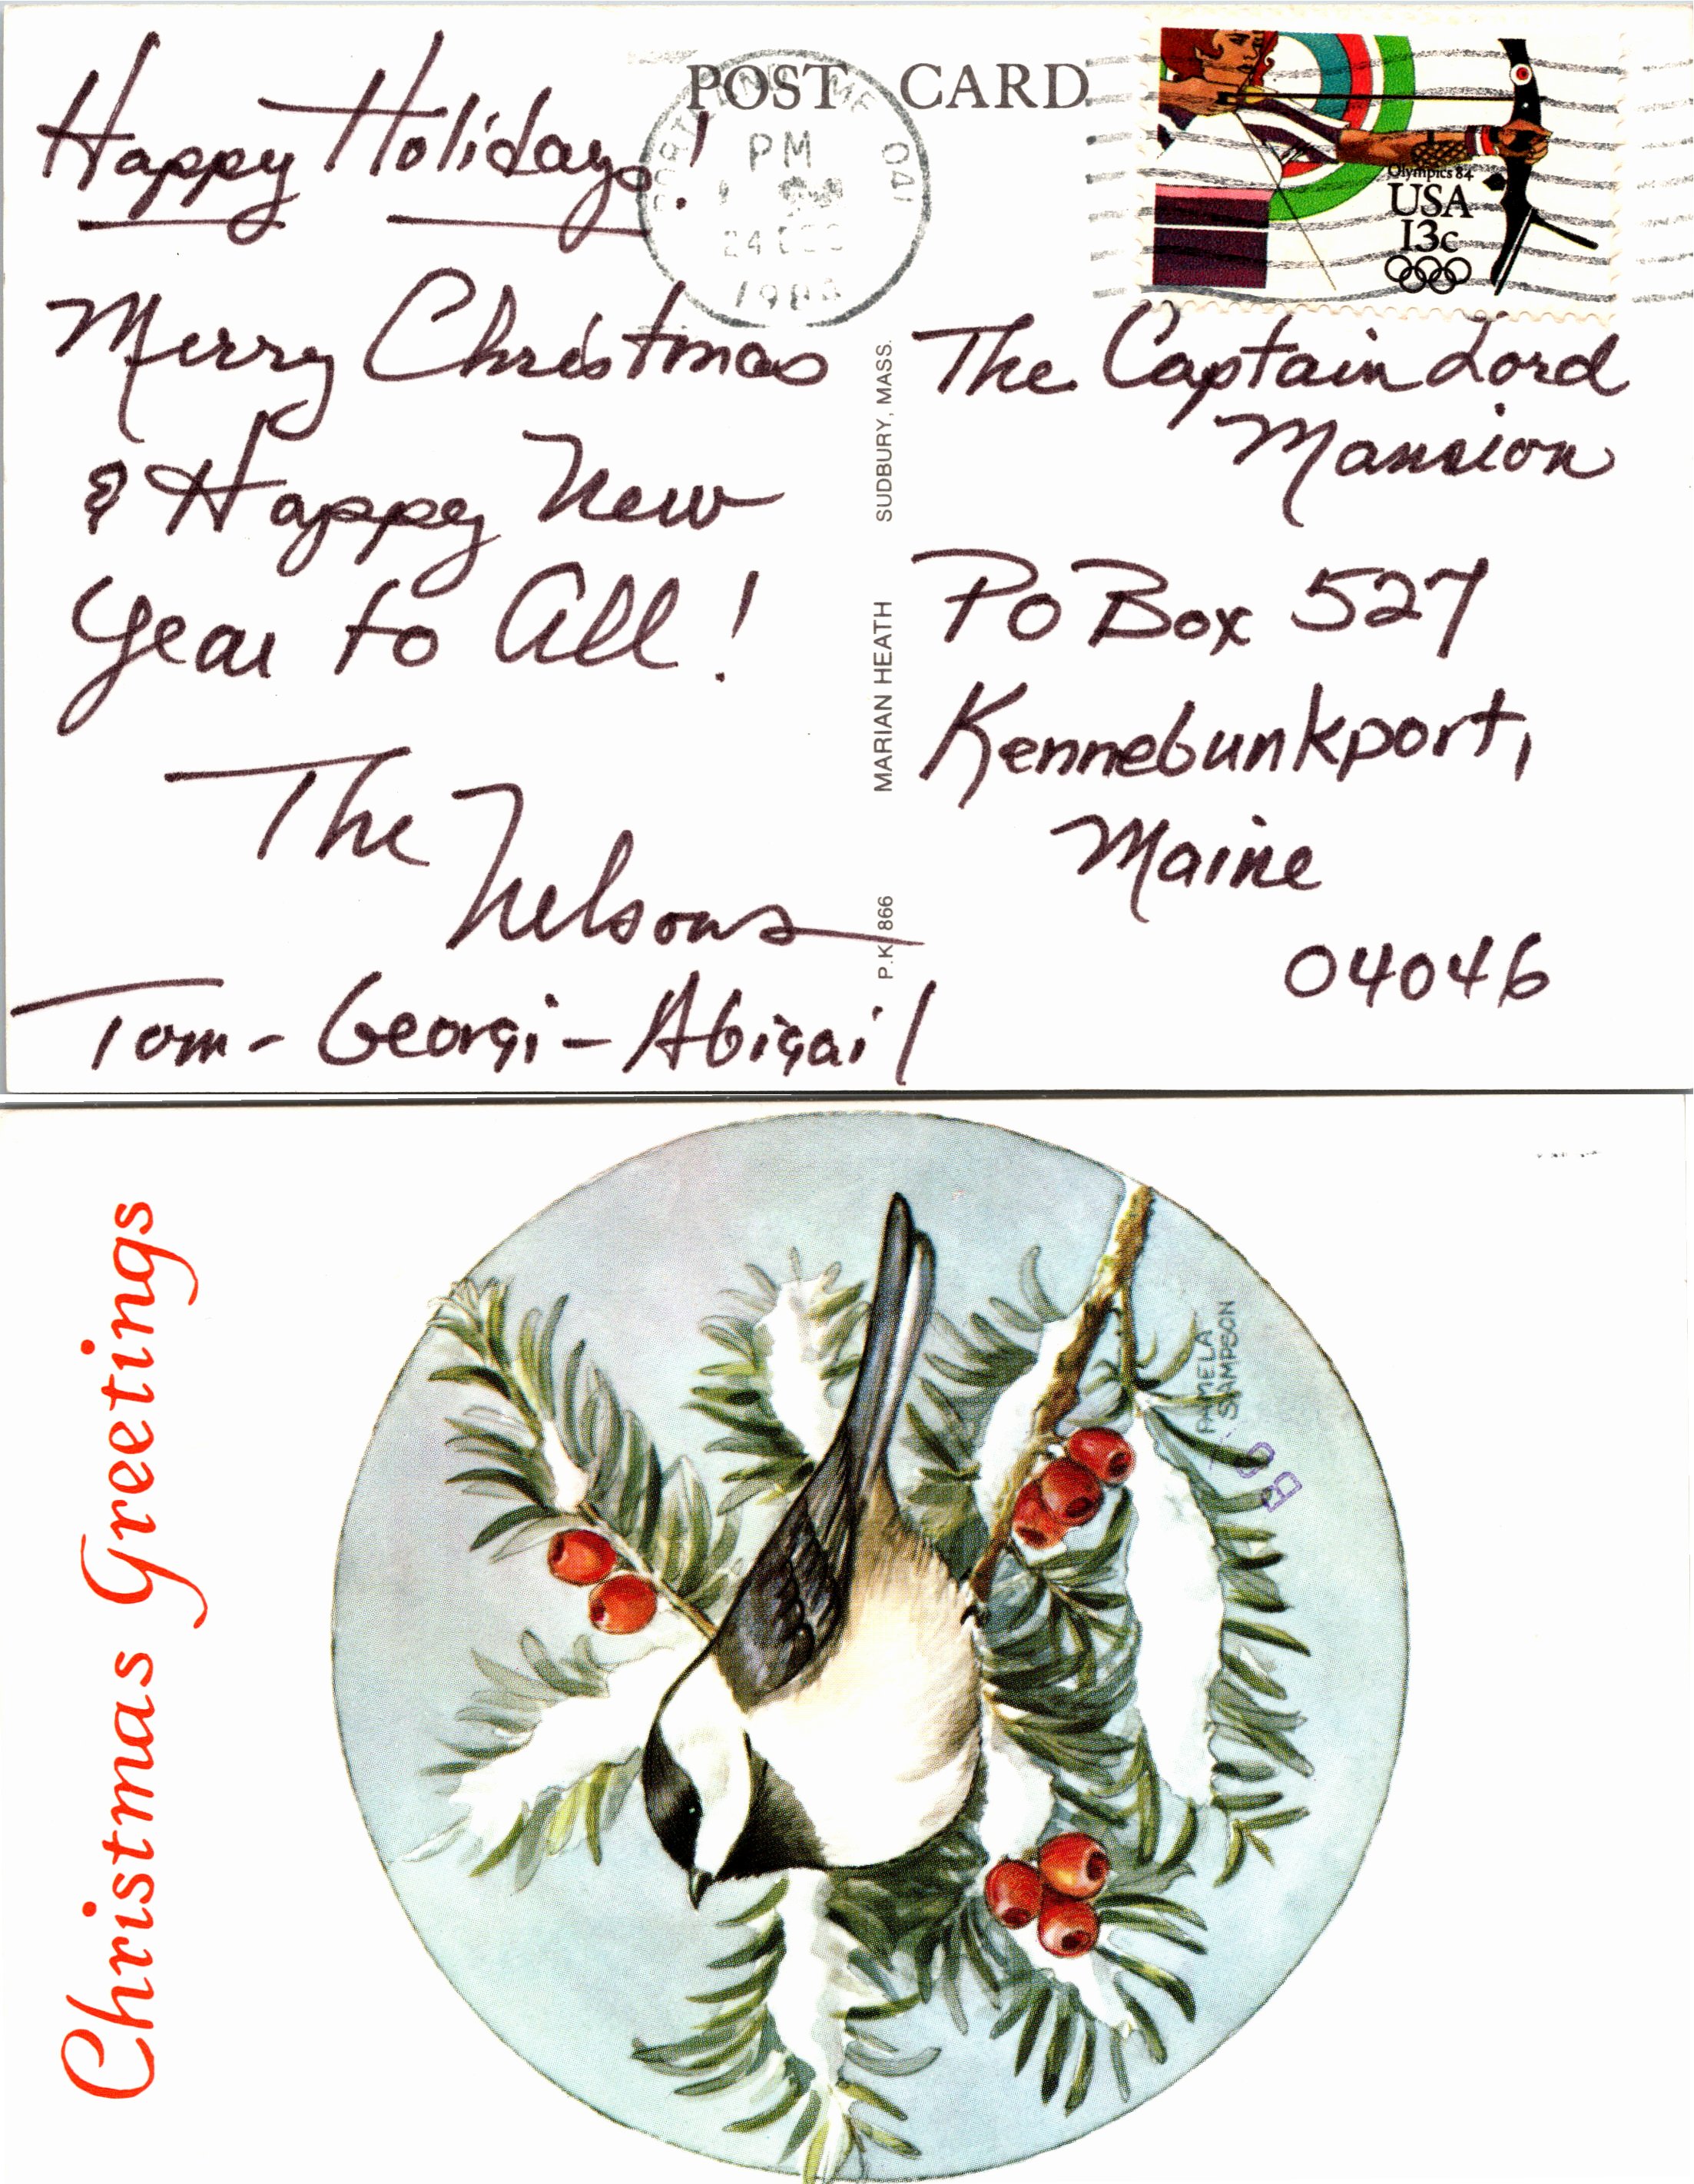 Happy Holidays!
Merry Christmas
& Happy New
Year to All!
The
Nelsons
Tom - Georgi - Abigail
POST CARD
PM
24 DEC
Olympics 84
USA
13c
P.K. 866 MARIAN HEATH SUDBURY, MASS.
The Captain Lord
Mansion
PO Box 527
Kennebunkport,
Maine
04046
Christmas Greetings
PAMELA
SAMPSON